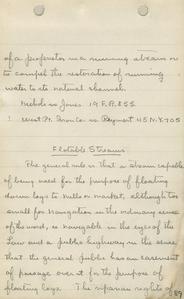 of a proprietor in a running stream or
to compel the restoration of running
water to its natural channel.
Nicholas vs Jones 19 F.R. 855
! West Pt. Iron Co. vs Reyment 45 N.Y. 705
Flotable Streams
The general rule is that a stream capable
of being used for the purpose of floating
down logs to mills or market, although too
small for navigation in the ordinary sense
of the word, is navigable in the eyes of the
law and a public highway in the sense
that the general public has an easement
of passage over it for the purpose of
floating logs. The riparian rights of
89